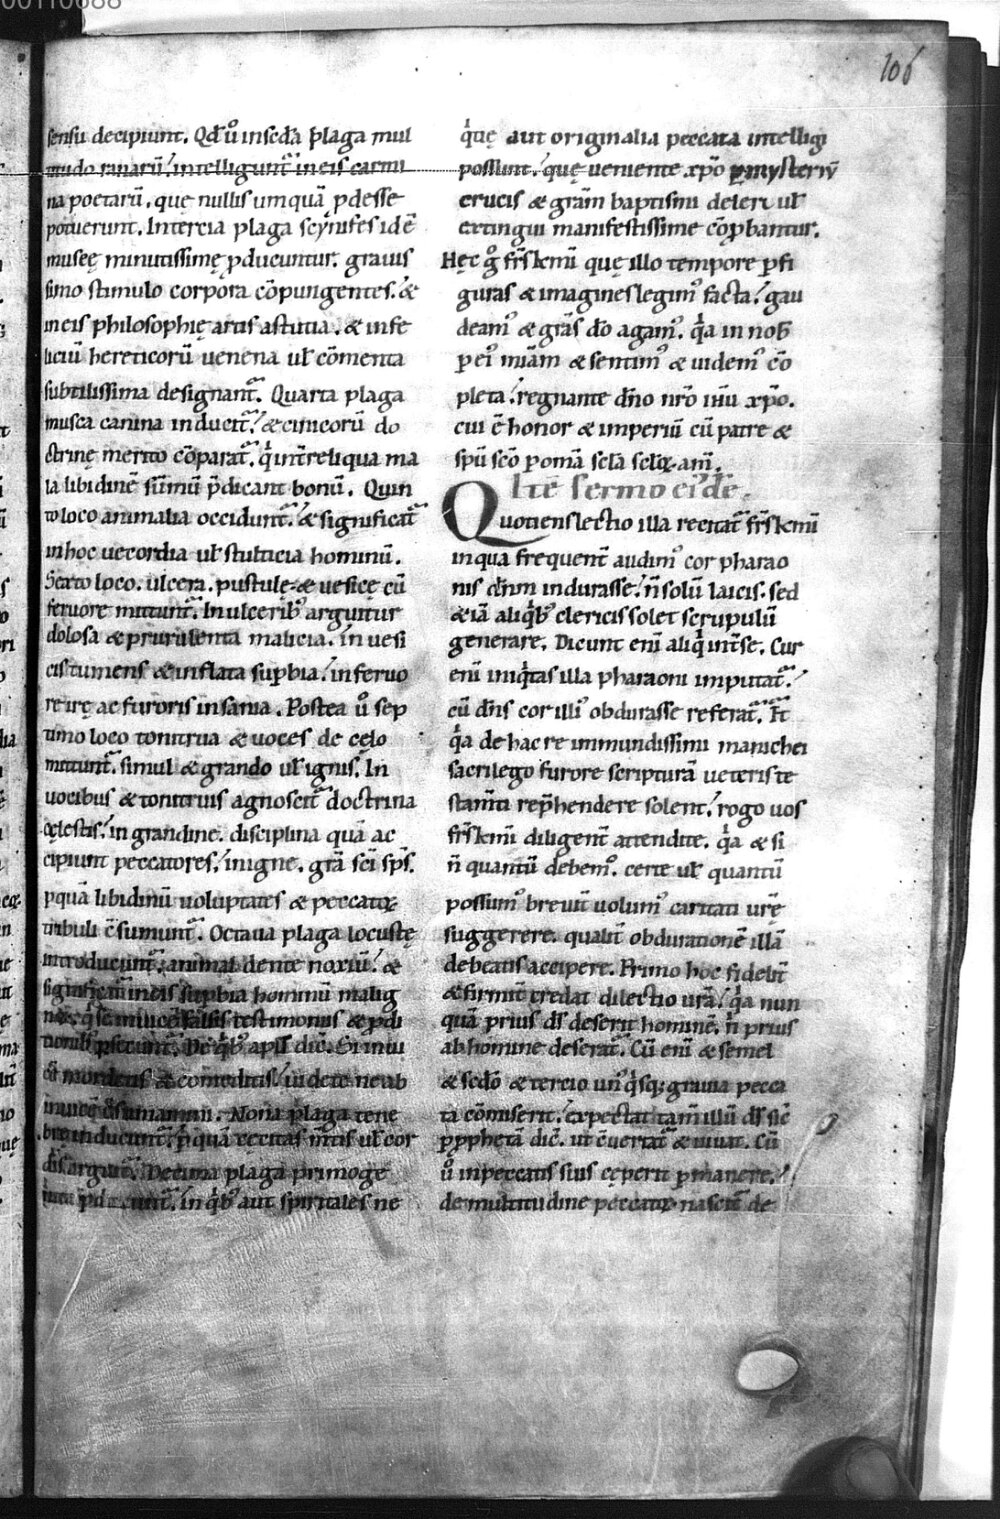 00110688
106
sensu decipiunt. Qđ u̾ in scđa plaga mul
titudo ranarū, intelligunt᷒ in eis carmi
na poetarū, quę nullis umquā pdesse
potuerunt. In tercia plaga scynifes id ē
muscę minutissimę p̱ducuntur, grauis
simo stimulo corpora cōpungentes, &
in eis philosophię artis astutia, & infe
liciū hereticorū uenena ul̵ cōmenta
subtilissima designant᷒. Quarta plaga
musca canina inducit᷒, & cinicorū do
ctrinę merito cōparat᷒, qͥ int̄ reliqua ma
la libidinē sūmū p̄dicant bonū. Quin
to loco animalia occidunt᷒, & significat᷒
in hoc uecordia ul̵ stulticia hominū.
Sexto loco, ulcera, pustulę, & uesicę cū
feruore mittunt᷒. In ulcerib᷒ arguitur
dolosa & prurulenta malicia, in uesi
cis tumens & inflata sup̱bia, in feruo
re irę ac furoris insania. Postea u̾ sep
timo loco tonitrua & uoces de cęlo
mittunt᷒, simul & grando ul̵ ignis. In
uocibus & tonitruis agnoscit᷒ doctrina
cęlestis, in grandine, disciplina quā ac
cipiunt peccatores, in igne, grā sc̄i sp̄s,
p quā libidinū uoluptates & peccatoꝝ
tribuli ꝯsumunt᷒. Octaua plaga locustę
introducunt᷒, animal dente noxiū, &
significat᷒ in eis sup̱bia hominū malig
falsis testimoniis & p̱di
De qͥb᷒ apl̄s dic̄. Si inui
cē mordetis & comeditis, uidete ne ab
inuicē ꝯsumamini. Nona plaga tene
brę inducunt᷒, p̱ quā cęcitas mtis ul̵ cor
Decima plaga primoge
in qͥb᷒ aut spiritales ne
qͥtię aut originalia peccata intelligi
possunt, quę ueniente xp̄o p̱ mysteriū
crucis & grām baptismi deleri ul̵
extingui manifestissime cōp̱bantur.
Hęc g̊ fr̄s kmī quę illo tempore p̱ fi
guras & imagines legim᷒ facta, gau
deam᷒ & grās dō agam᷒, qͣa in nob̄
p̱ ei᷒ mīam & sentim᷒ & uidem᷒ cō
pleta, regnante dn̄o nr̄o ih̄u xp̄o,
cui ē honor & imperiū cū patre &
sp̄u sc̄o p̱ om̄a sc̄la sc̄loꝝ. am̄.
It̄e sermo ei᷒dē.
Quotiens lectio illa recitat᷒ fr̄s kmī
in qua frequent̄ audim᷒ cor pharao
nis dn̄m indurasse, n̄ solū laicis, sed
& iā aliqͥb᷒ clericis solet scrupulū
generare. Dicunt enī aliqͥ int̄ se. Cur
enī iniqͥtas illa pharaoni imputat᷒,
cū dn̄s cor illi᷒ obdurasse referat᷒. Et
qͣa de hac re immundissimi manichei
sacrilego furore scripturā ueteris te
stam̄ti rep̱hendere solent, rogo uos
fr̄s kmī diligent̄ attendite, qͣa & si
n̄ quantū debem᷒, certe ul̵ quantū
possum᷒ breuit̄ uolum᷒ caritati urę
suggerere, qualit̄ obdurationē illā
debeatis accipere. Primo hoc fidelit̄
& firmit̄ credat dilectio ur̄a, qͣa nun
quā prius ds̄ deserit hominē, n̄ prius
ab homine deserat᷒. Cū enī & semel
& sc̄do & tercio un᷒qͥsq; grauia pecca
ta cōmiserit, expectat tam̄ illū ds̄ sic̄
p̱ p̱phetā dic̄, ut ꝯuertat᷒ & uiuat. Cū
u̾ in peccatis suis cęperit p̱manere,
de multitudine peccatoꝝ nascit᷒ de